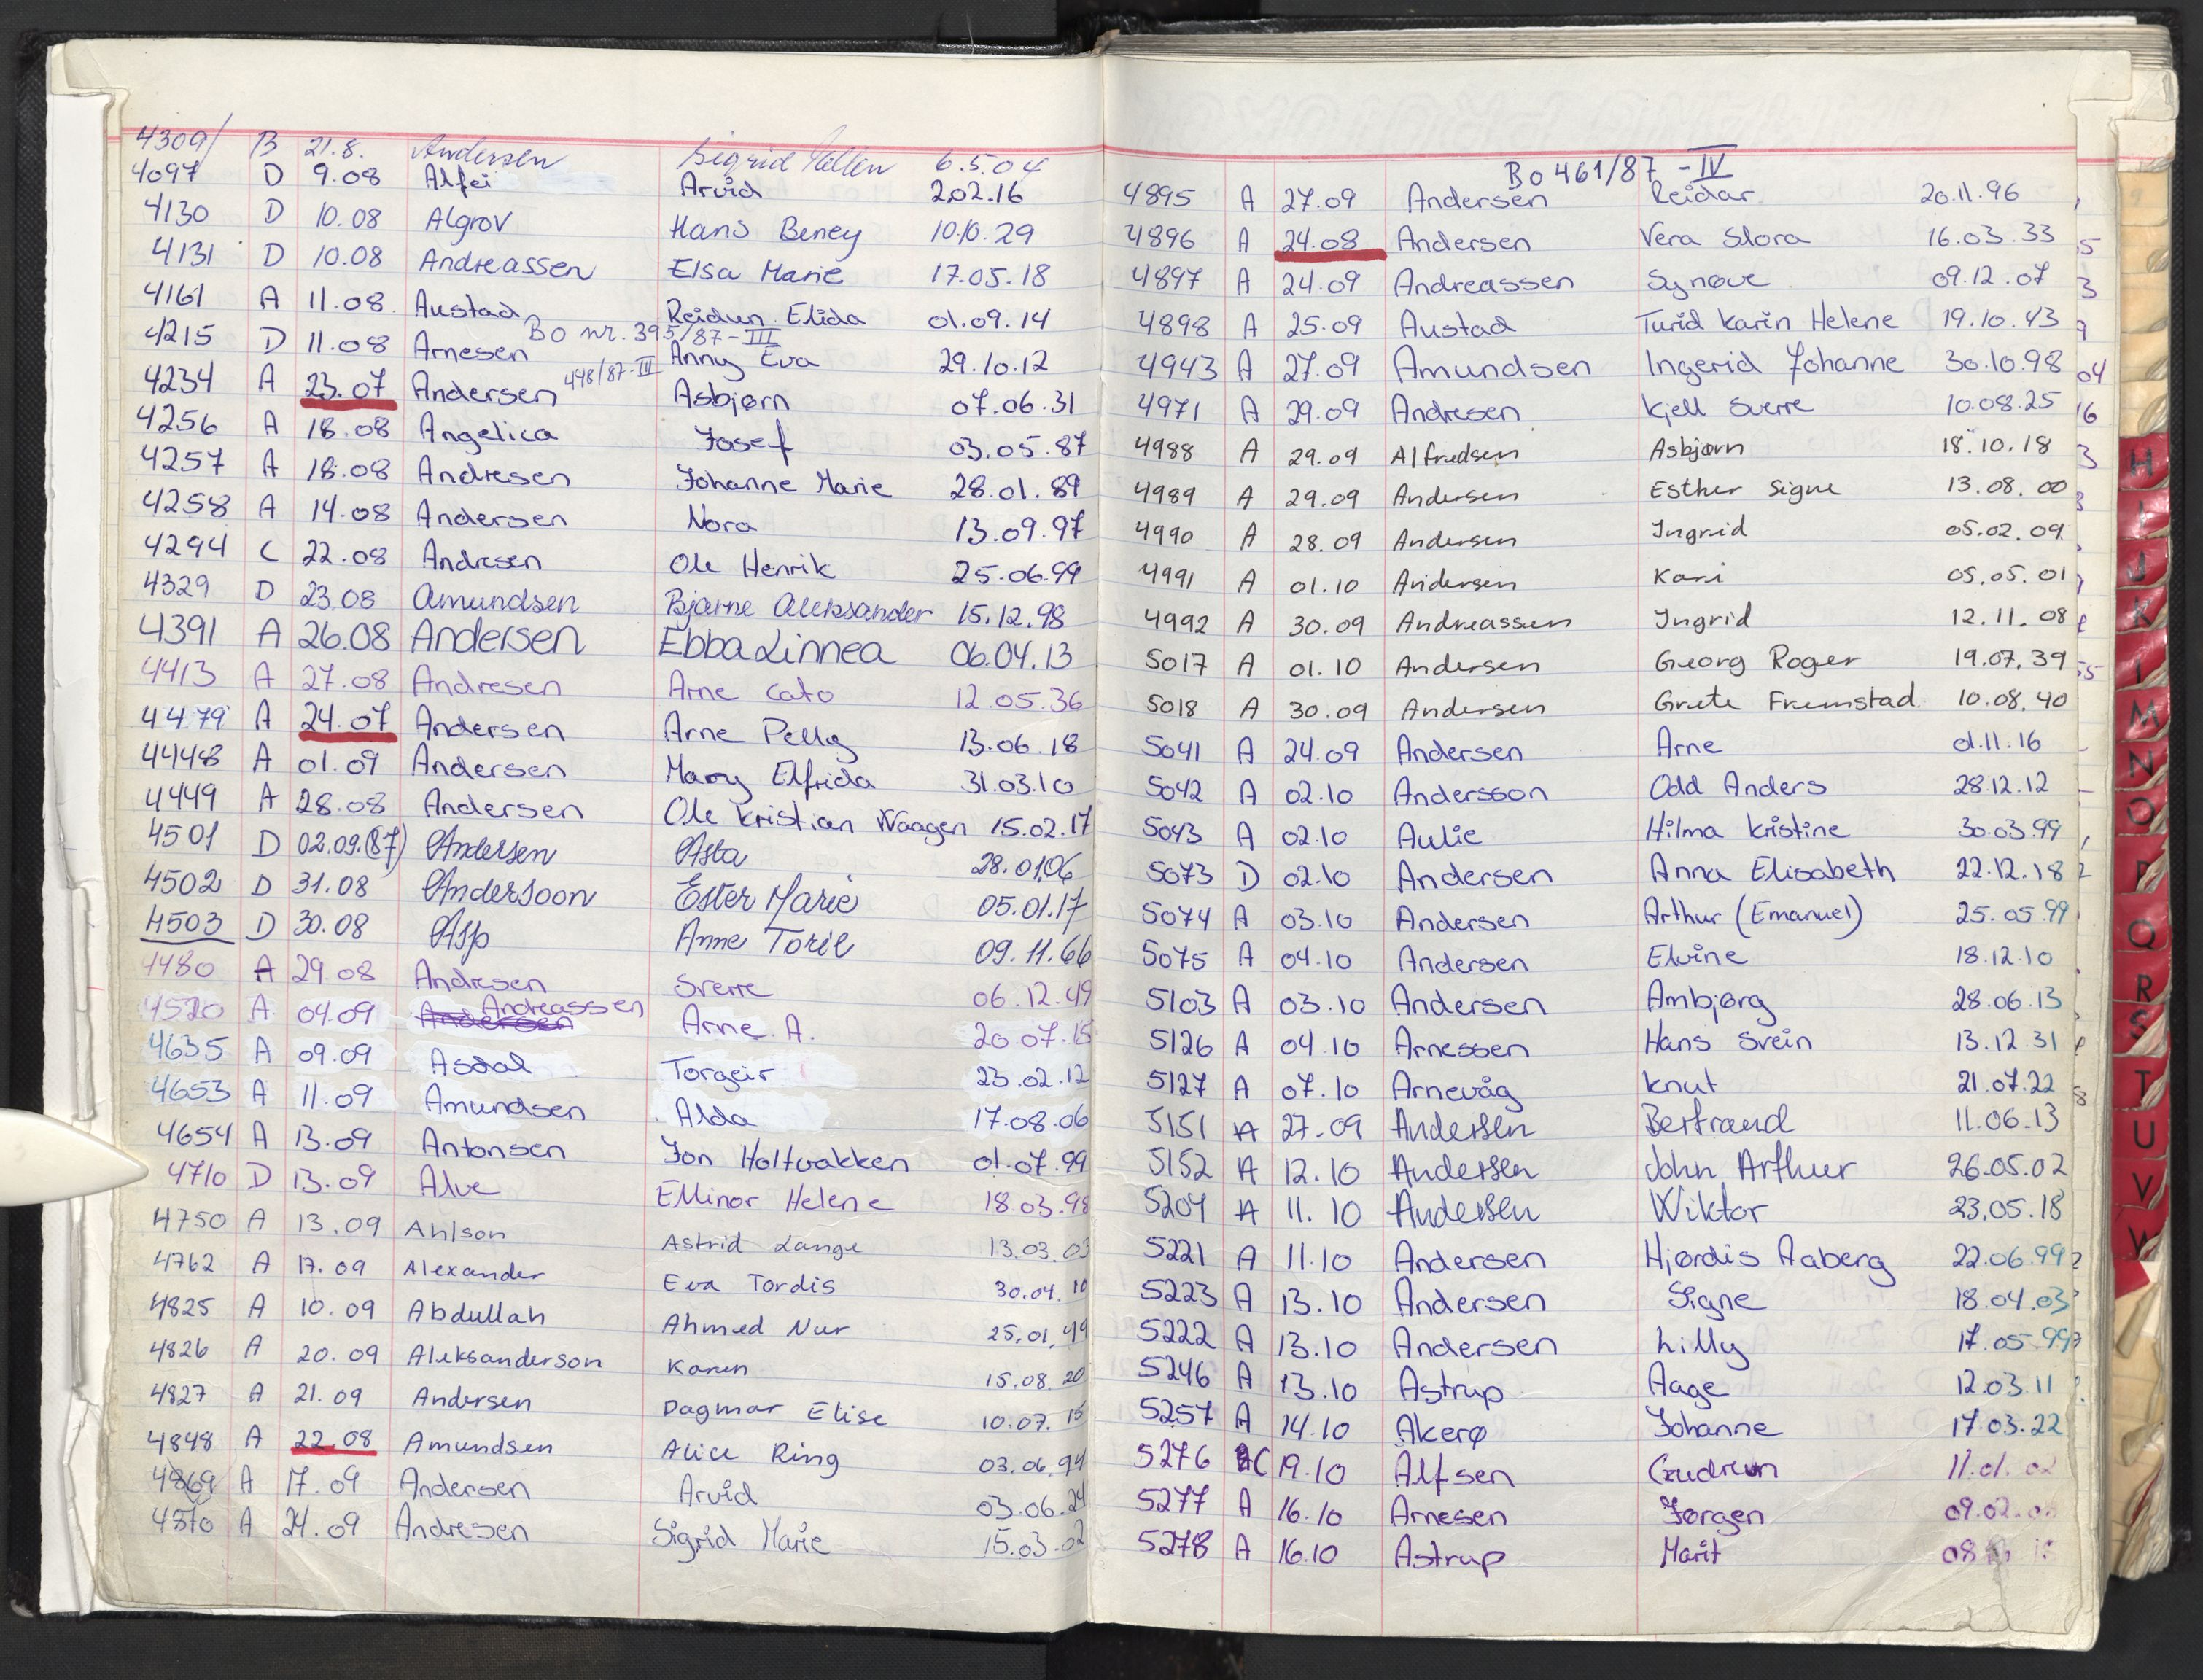 4309/ B 21.8. Andersen Sigrid 6.5.04
4097 D 9.08 Alfei Arvid 202.16
4130 D 10.08 Algrov Hans Beney 10.10.29
4131 D 10.08 Andreassen Elsa Marie 17.05.18
4161 A 11.08 Austad Reidun Elida 01.09.14
Bo nr. 395/87-III
4215 D 11.08 Arnesen Anny Eva 29.10.12
4234 A 23.07 Andersen 498/87-III Asbjørn 07.06.31
4256 A 18.08 Angelica Josef 03.05.87
4257 A 18.08 Andresen Johanne Marie 28.01.89
4258 A 14.08 Andersen Nora 13.09.97
4294 C 22.08 Andresen Ole Henrik 25.06.99
4329 D 23.08 Amundsen Bjarne Aleksander 15.12.98
4391 A 26.08 Andersen Ebba Linnea 06.04.13
4413 A 27.08 Andresen Arne Cato 12.05.36
4479 A 24.07 Andersen Arne Pelly 13.06.18
4448 A 01.09 Andersen Mary Elfrida 31.03.10
4449 A 28.08 Andersen Ole Kristian Waagen 15.02.17
4501 D 02.09.(87) Andersen Asta 28.01.06
4502 D 31.08 Andersoon Ester Marie 05.01.17
4503 D 30.08 Asp Anne Toril 09.11.66
4480 A 29.08 Andresen Sverre 06.12.49
4520 A 04.09 Andersen Andreassen Arne A. 20.07.15
4635 A 09.09 Asdal Torgeir 23.02.12
4653 A 11.09 Amundsen Alda 17.08.06
4654 A 13.09 Antonsen Jon Holtvakken 01.07.99
4710 D 13.09 Alve Ellinor Helene 18.03.98
4750 A 13.09 Ahlson Astrid Lange 13.03.03
4762 A 17.09 Alexander Eva Tordis 30.04.10
4825 A 10.09 Abdullah Ahmed Nur 25.01.49
4826 A 20.09 Aleksanderson Karen 15.08.20
4827 A 21.09 Andersen Dagmar Elise 10.07.15
4848 A 22.08 Amundsen Alice Ring 03.06.94
4869 A 17.09 Andersen Arvid 03.06.24
4870 A 24.09 Andresen Sigrid Marie 15.03.02
Bo 461/87-IV
4895 A 27.09 Andersen Reidar 20.11.96
4896 A 24.08 Andersen Vera Slora 16.03.33
4897 A 24.09 Andreassen Synøve 09.12.07
4898 A 25.09 Austad Turid Karin Helene 19.10.43
4943 A 27.09 Amundsen Ingerid Johanne 30.10.98
4971 A 29.09 Andresen Kjell Sverre 10.08.25
4988 A 29.09 Alfredsen Asbjørn 18.10.18
4989 A 29.09 Andersen Esther Signe 13.08.00
4990 A 28.09 Andersen Ingrid 05.02.09
4991 A 01.10 Andersen Kari 05.05.01
4992 A 30.09 Andreassen Ingrid 12.11.08
5017 A 01.10 Andersen Georg Roger 19.07.39
5018 A 30.09 Andersen Grete Fremstad 10.08.40
5041 A 24.09 Andersen Arne 01.11.16
5042 A 02.10 Andersson Odd Anders 28.12.12
5043 A 02.10 Aulie Hilma Kristine 30.03.99
5073 D 02.10 Andersen Anna Elisabeth 22.12.18
5074 A 03.10 Andersen Arthur (Emanuel) 25.05.99
5075 A 04.10 Andersen Elvine 18.12.10
5103 A 03.10 Andersen Ambjørg 28.06.13
5126 A 04.10 Arnessen Hans Svein 13.12.31
5127 A 07.10 Arnevåg Knut 21.07.22
5151 A 27.09 Andersen Bertrand 11.06.13
5152 A 12.10 Andersen John Arthur 26.05.02
5204 A 11.10 Andersen Wiktor 23.05.18
5221 A 11.10 Andersen Hjørdis Aaberg 22.06.99
5223 A 13.10 Andersen Signe 18.04.03
5222 A 13.10 Andersen Lilly 17.05.99
5246 A 13.10 Astrup Aage 12.03.11
5257 A 14.10 Akerø Johanne 17.03.22
5276 C 19.10 Alfsen Gudrun 11.01.02
5277 A 16.10 Arnesen Jørgen 09.02.
5278 A 16.10 Astrup Marit 08
H
I
J
K
L
M
N
O
P
Q
R
S
T
U
V
W